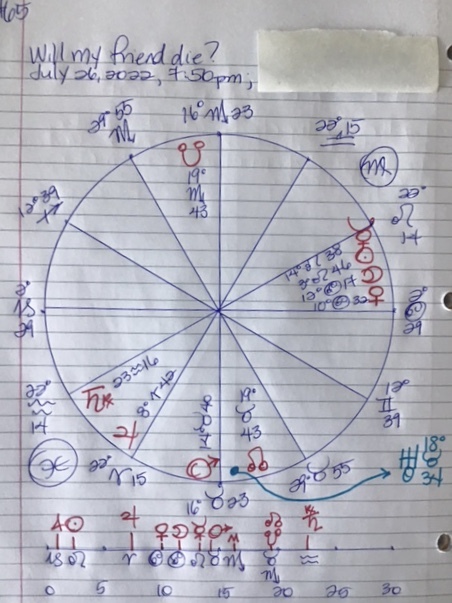 165
Will my friend die?
July 26, 2022, 7:50pm;
29° ♏ 55
16° ♏ 23
22° ♎ 15
♍
22° ♌ 14
12° ♐ 39
☋
19° ♏ 43
☿ 14° ♌ 38
☉ 3° ♌ 46
☽ 12° ♋ 17
♀ 10° ♋ 32
2° ♑ 29
2° ♋ 29
22° ♒ 14
♄℞ 23 ♒ 16
♃ 8° ♈ 42
14° ♉ 40
♂
19° ♉ 43
☊
12° ♊ 39
♓
22° ♈ 15
16° ♉ 23
29° ♉ 55
♅ 18° ♉ 34
♑ ♌ ♈ ♋ ♋ ♌ ♉ ♏ ♉ ♏ ♒
0 5 10 15 20 25 30